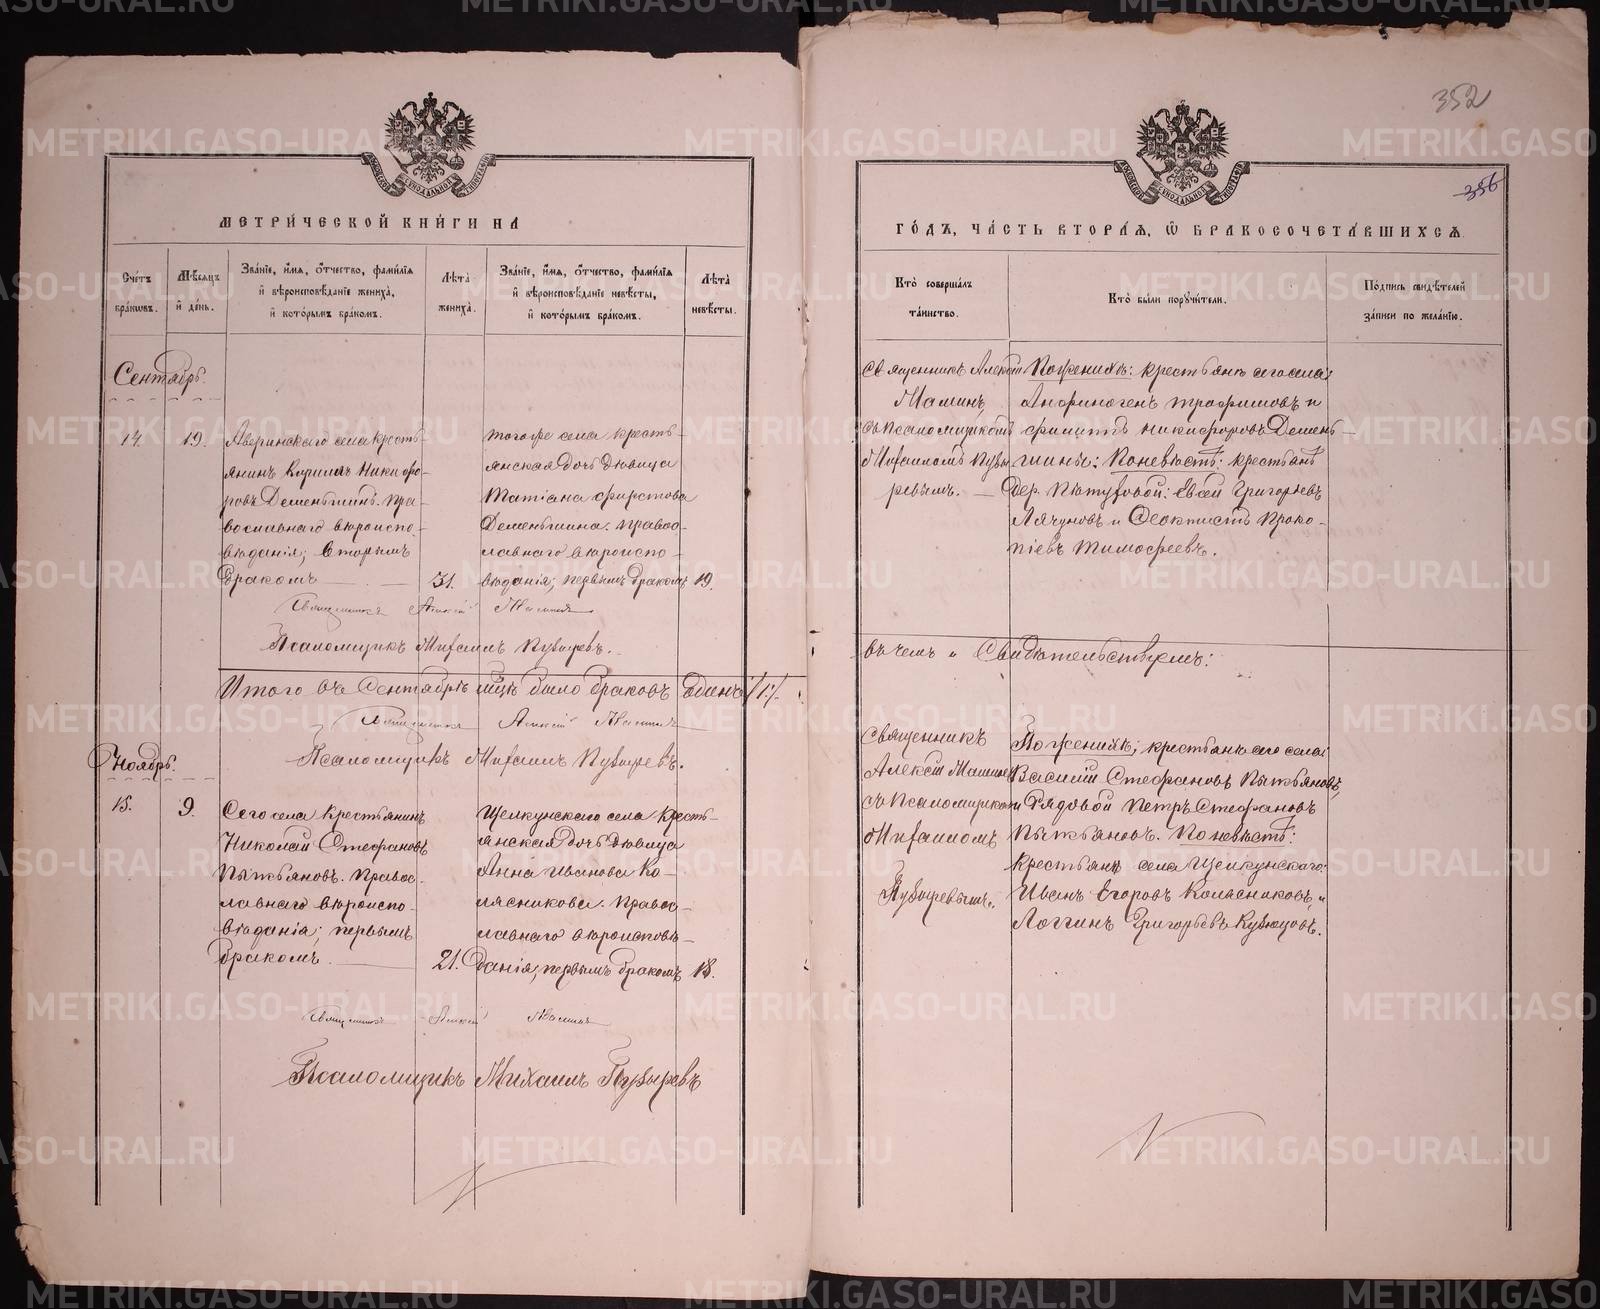 352
356
МЕТРИ́ЧЕСКОЙ КНИ́ГИ НА
ГО́ДЪ, ЧА́СТЬ ВТОРА́Я, Ѽ БРАКОСОЧЕТА́ВШИХСЯ.
Сче́тъ бра́ковъ.
Мѣ́сяцъ и̂ де́нь.
Зва́нїе, и́мя, о́тчество, фами́лїя и̂ вѣроисповѣ́данїе жениха̀, и̂ кото́рымъ бра́комъ.
Лѣ́та жениха̀.
Зва́нїе, и́мя, о́тчество, фами́лїя и̂ вѣроисповѣ́данїе невѣ́сты, и̂ кото́рымъ бра́комъ.
Лѣ́та невѣ́сты.
Кто̀ соверша́лъ та́инство.
Кто̀ бы́ли поручи́тели.
По́дпись свидѣ́телей за́писи по жела́нїю.
Сентябрь.
14.
19.
Аверинскаго села кресть-
янинъ Кириллъ Никифо-
ровъ Деменьшинъ. Пра-
вославнаго вѣроиспо-
вѣданія; вторымъ
бракомъ
31.
Тогоже села кресть-
янская дочь дѣвица
Татіана Фирстова
Деменьшина. Правос-
лавнаго вѣроиспо-
вѣданія; первымъ бракомъ
19.
Священникъ Алексій
Маминъ,
съ Псаломщикомъ
Михаиломъ Пузы
ревымъ.
По женихѣ: крестьянъ сего села:
Анфиногенъ Трофимовъ и
Филиппъ Никифоровъ Демень-
шины: По невѣстѣ: крестьянъ
дер. Кѣтуговой: Евсей Григорьевъ
Лячуновъ и Феоктистъ Проко-
піевъ Тимофеевъ.
Священникъ Алексій Маминъ
Псаломщикъ Михаилъ Пузыревъ.
Итого въ Сентябрѣ мцѣ было браковъ одинъ /1:/.
въ чемъ и Свидѣтельствуемъ:
Священникъ Алексій Маминъ
Псаломщикъ Михаилъ Пузыревъ.
Ноябрь.
15.
9.
Сего села Крестьянинъ
Николай Стефановъ
Пѣтьяновъ. Правос-
лавнаго вѣроиспо-
вѣданія; первымъ
бракомъ.
21.
Щелкунскаго села кресть-
янская дочь дѣвица
Анна Иванова Ко-
лясникова. Правос-
лавнаго вѣроисповѣ-
данія, первымъ бракомъ
18.
Священникъ
Алексій Маминъ
съ Псаломщикомъ
Михаиломъ
Пузыревымъ.
По женихѣ; крестьянъ сего села:
Василій Стефановъ Пѣтьяновъ,
Рядовой Петръ Стефановъ
Пѣтьяновъ. По невѣстѣ:
крестьянъ села Щелкунскаго:
Иванъ Егоровъ Колясниковъ, и
Логгинъ Григорьевъ Кузнецовъ.
Священникъ Алексій Маминъ
Псаломщикъ Михаилъ Пузыревъ
METRIKI.GASO-URAL.RU